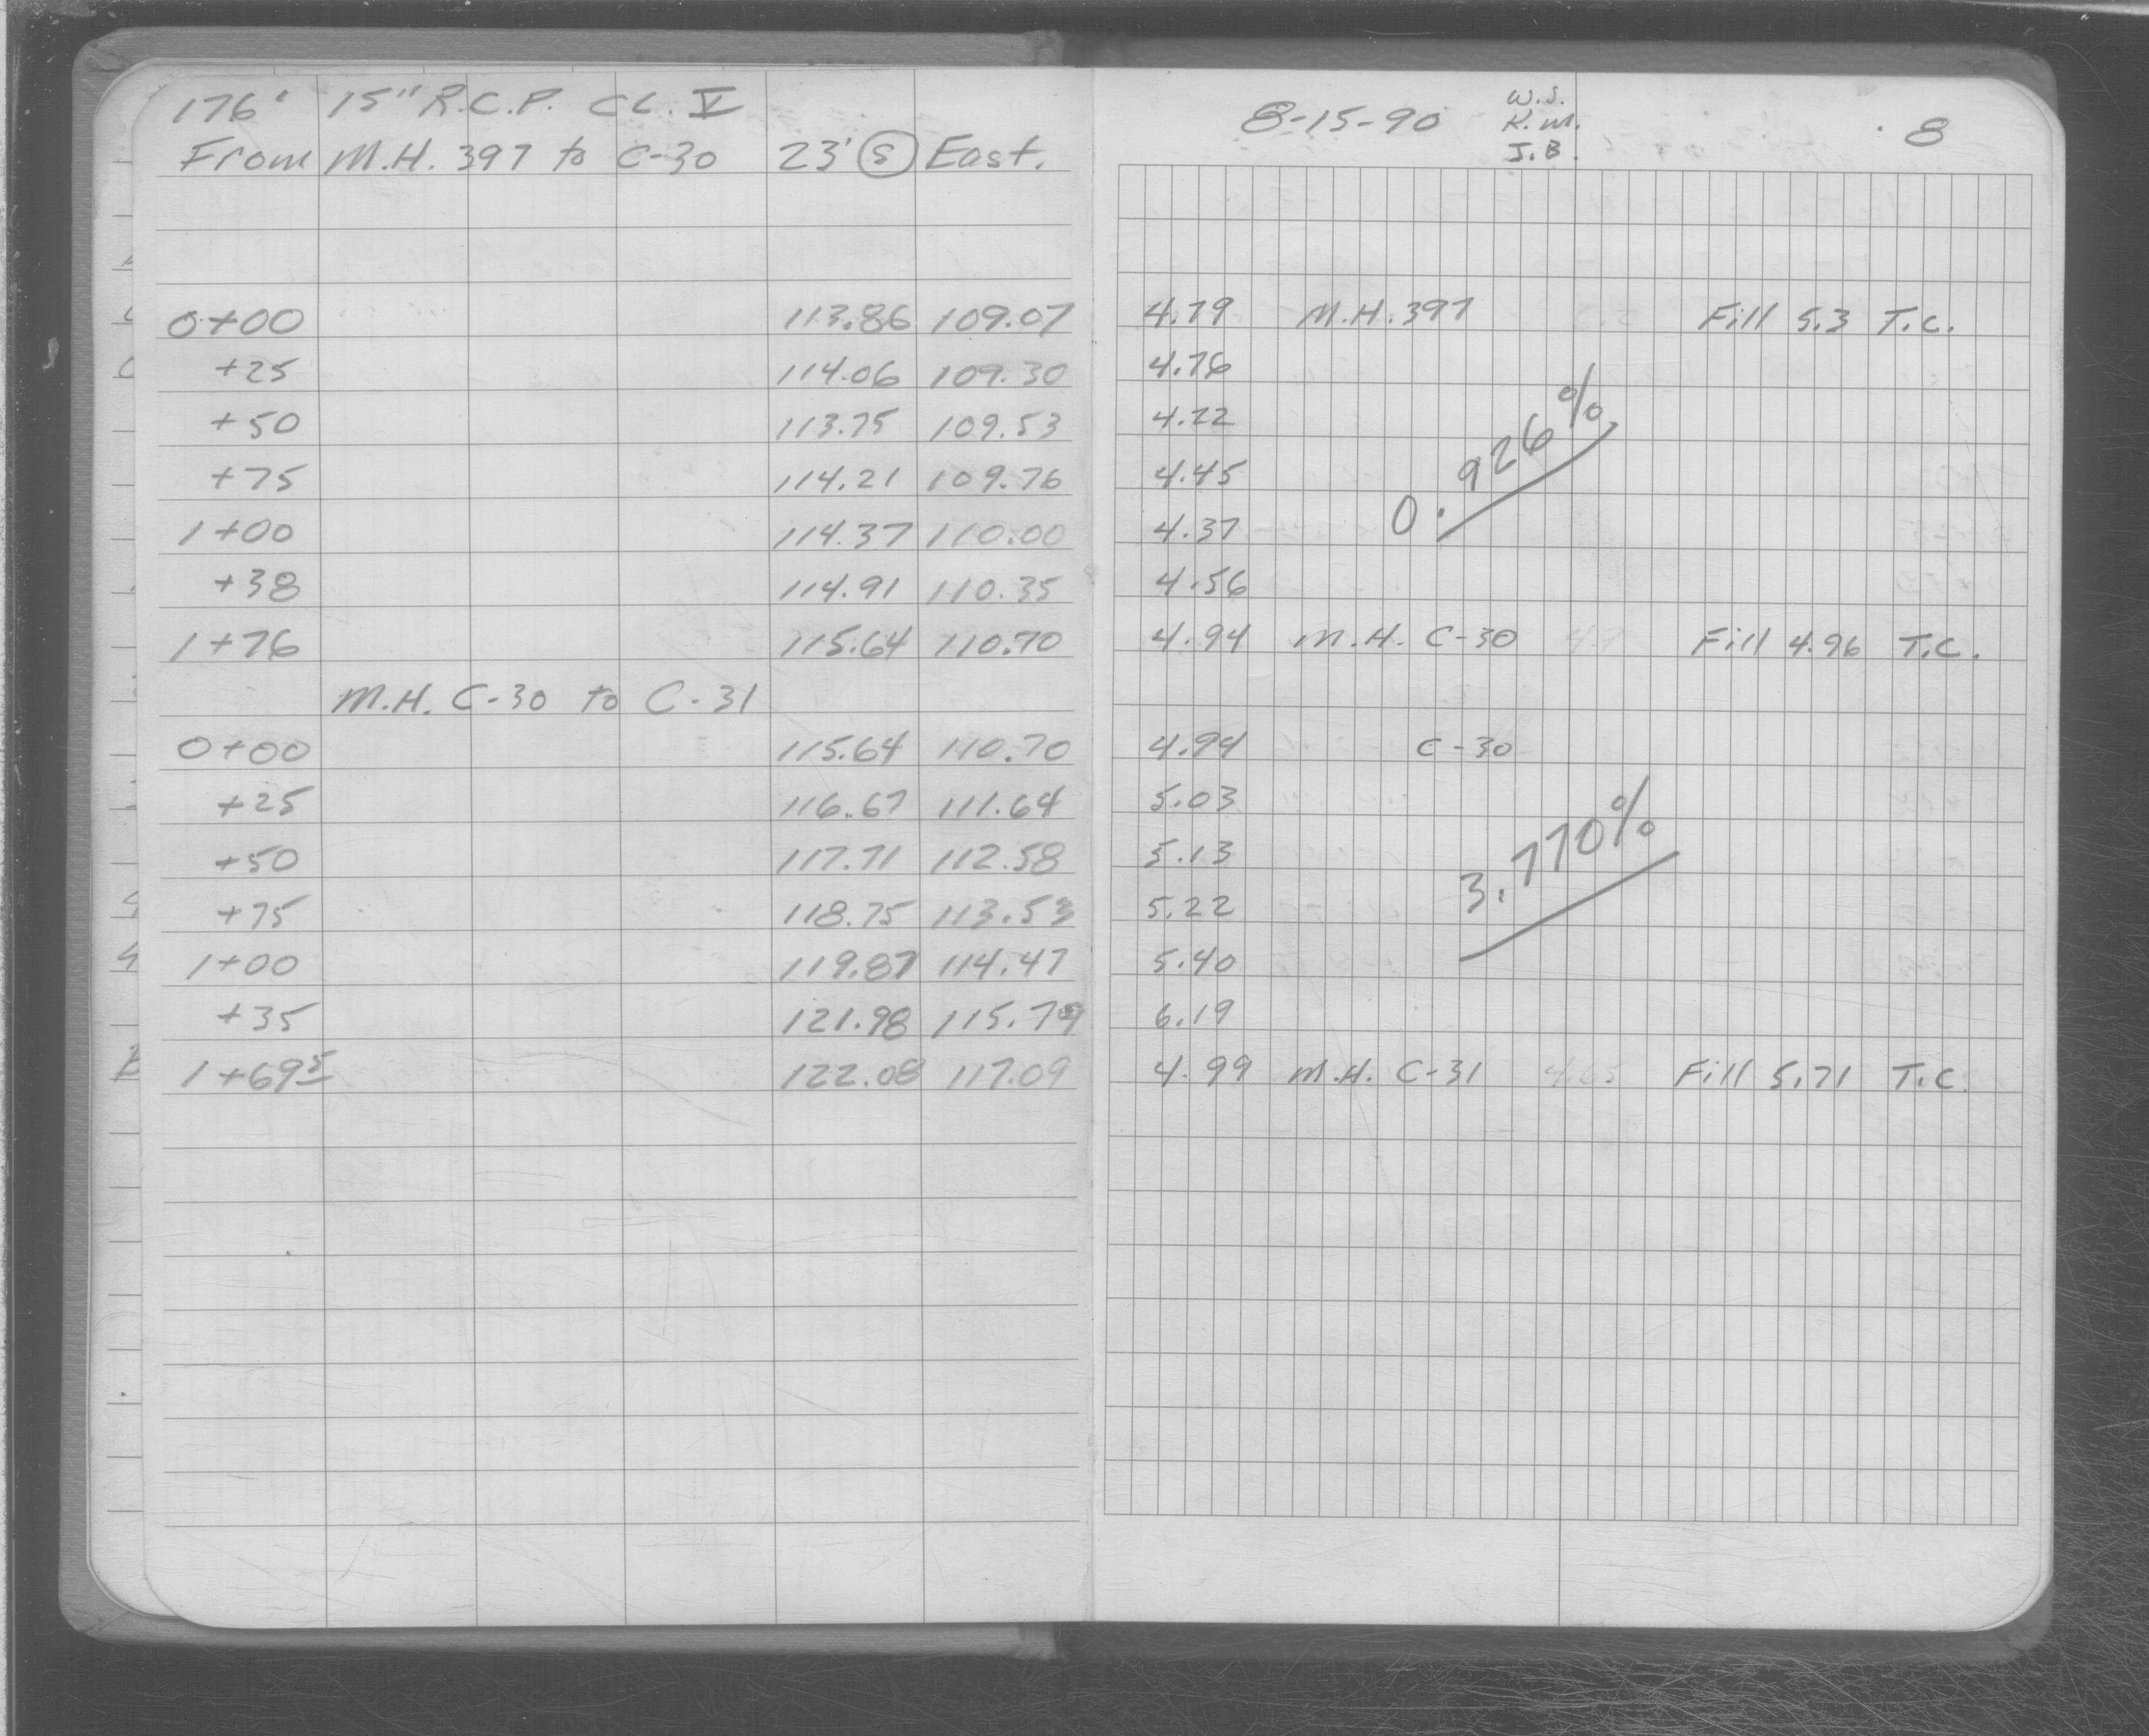 176' 15" R.C.P. CL. V
From M.H. 397 to C-30 23' S East.
0+00 113.86 109.07
+25 114.06 109.30
+50 113.75 109.53
+75 114.21 109.76
1+00 114.37 110.00
+38 114.91 110.35
1+76 115.64 110.70
M.H. C-30 to C-31
0+00 115.64 110.70
+25 116.67 111.64
+50 117.71 112.58
+75 118.75 113.53
1+00 119.87 114.47
+35 121.98 115.79
1+69⁵ 122.08 117.09
8-15-90 W.S. 8
K.M.
J.B.
4.79 M.H. 397 Fill 5.3 T.C.
4.76
4.22
4.45
4.37
0.926%
4.56
4.94 M.H. C-30 4.7 Fill 4.96 T.C.
4.94 C-30
5.03
5.13
5.22
3.770%
5.40
6.19
4.99 M.H. C-31 Fill 5.71 T.C.